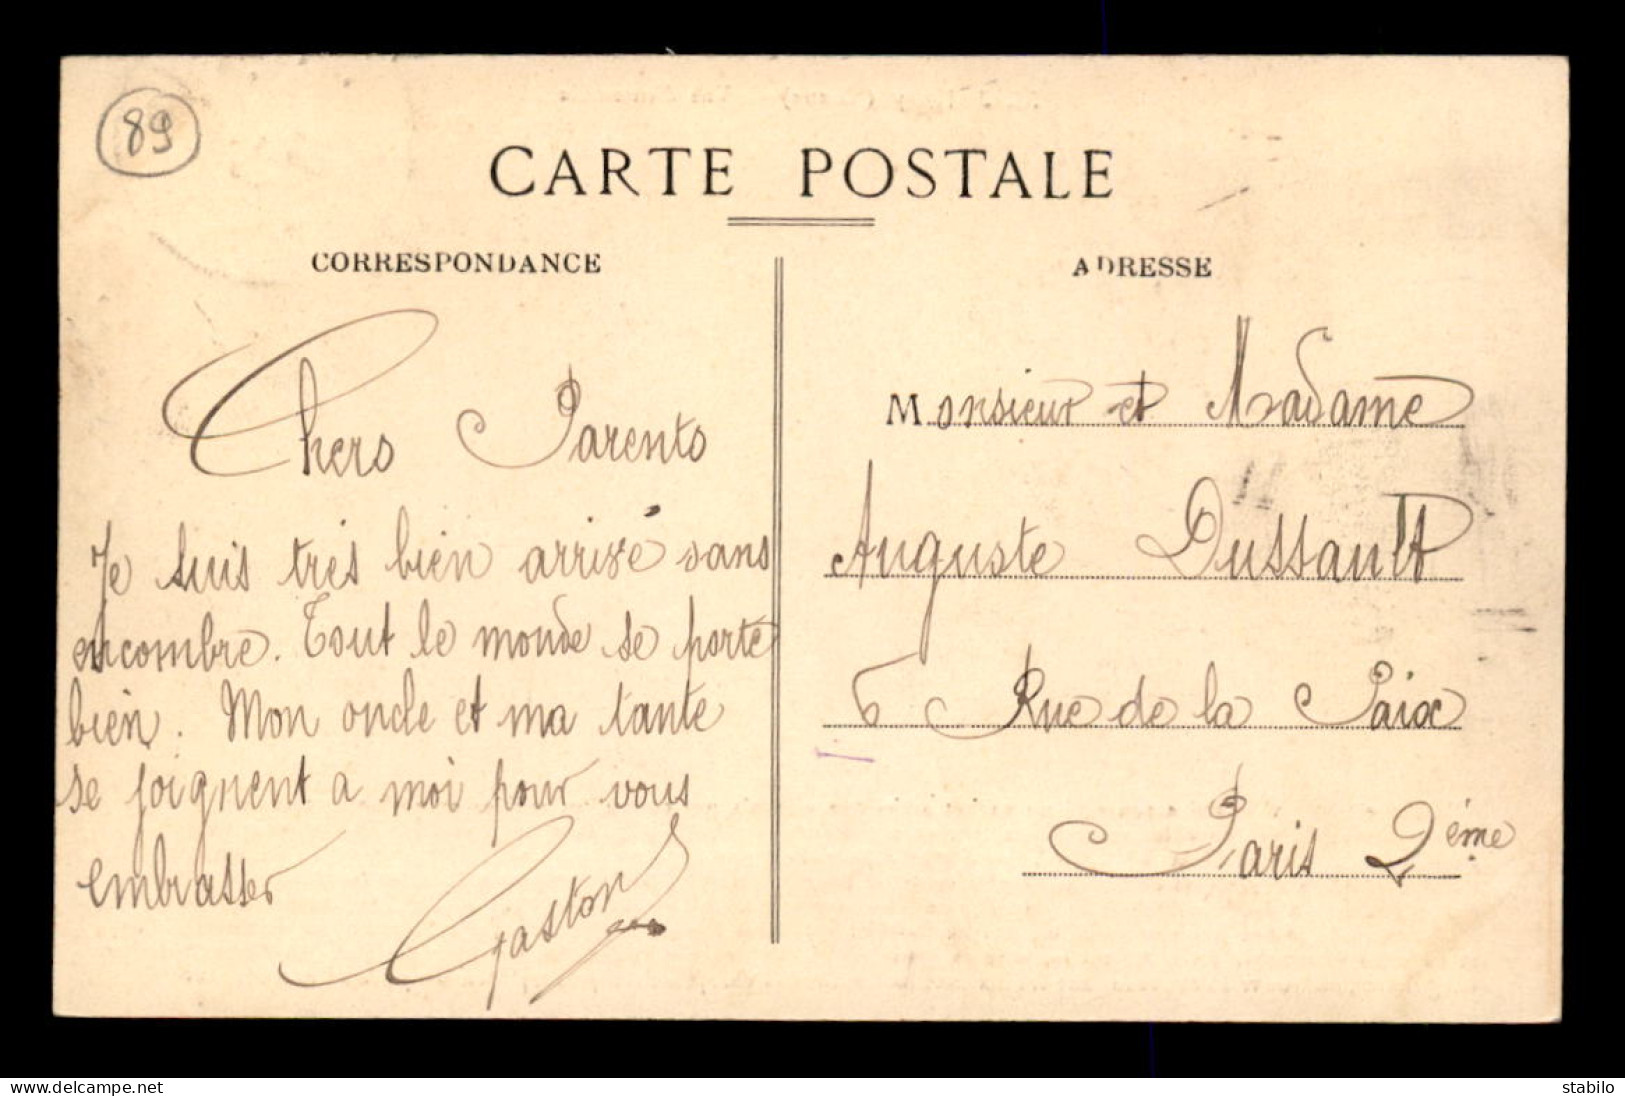 89
CARTE POSTALE
CORRESPONDANCE
Chers Parents
Je suis très bien arrivé sans
encombre. Tout le monde se porte
bien. Mon oncle et ma tante
se joignent a moi pour vous
embrasser
Gaston
ADRESSE
Monsieur et Madame
Auguste Dussault
6 Rue de la Paix
Paris 2ème
www.delcampe.net
stabilo